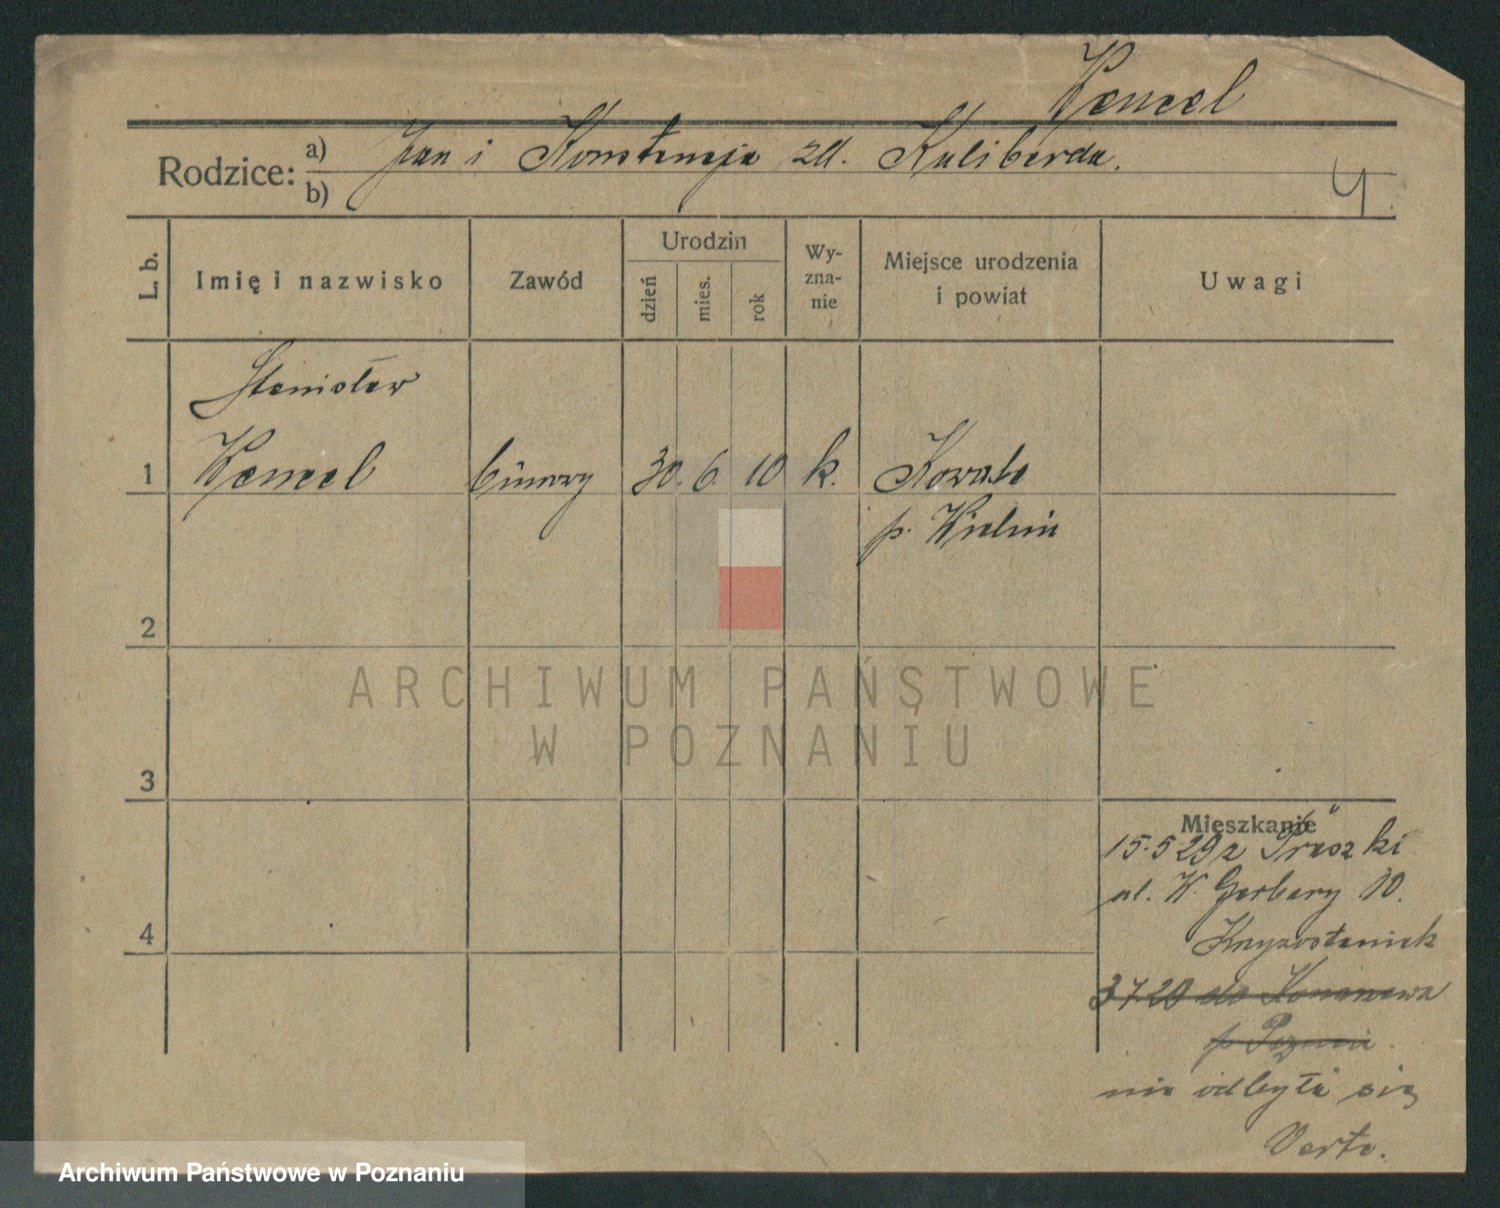 Kencel
Rodzice: a) Jan i Konstancja zd. Kaliberda.
b)
4
L. b.
Imię i nazwisko
Zawód
Urodzin
dzień
mies.
rok
Wy-
zna-
nie
Miejsce urodzenia
i powiat
Uwagi
Stanisław
1 Kencel biurowy 30. 6. 10 k. Kowale
p. Wieluń
2
3
4
Mieszkanie
15.5 29 z Praszki
ul. W. Garbary 10.
3 7 29 do
nie odbyła się
Verte.
ARCHIWUM PAŃSTWOWE
W POZNANIU
Archiwum Państwowe w Poznaniu